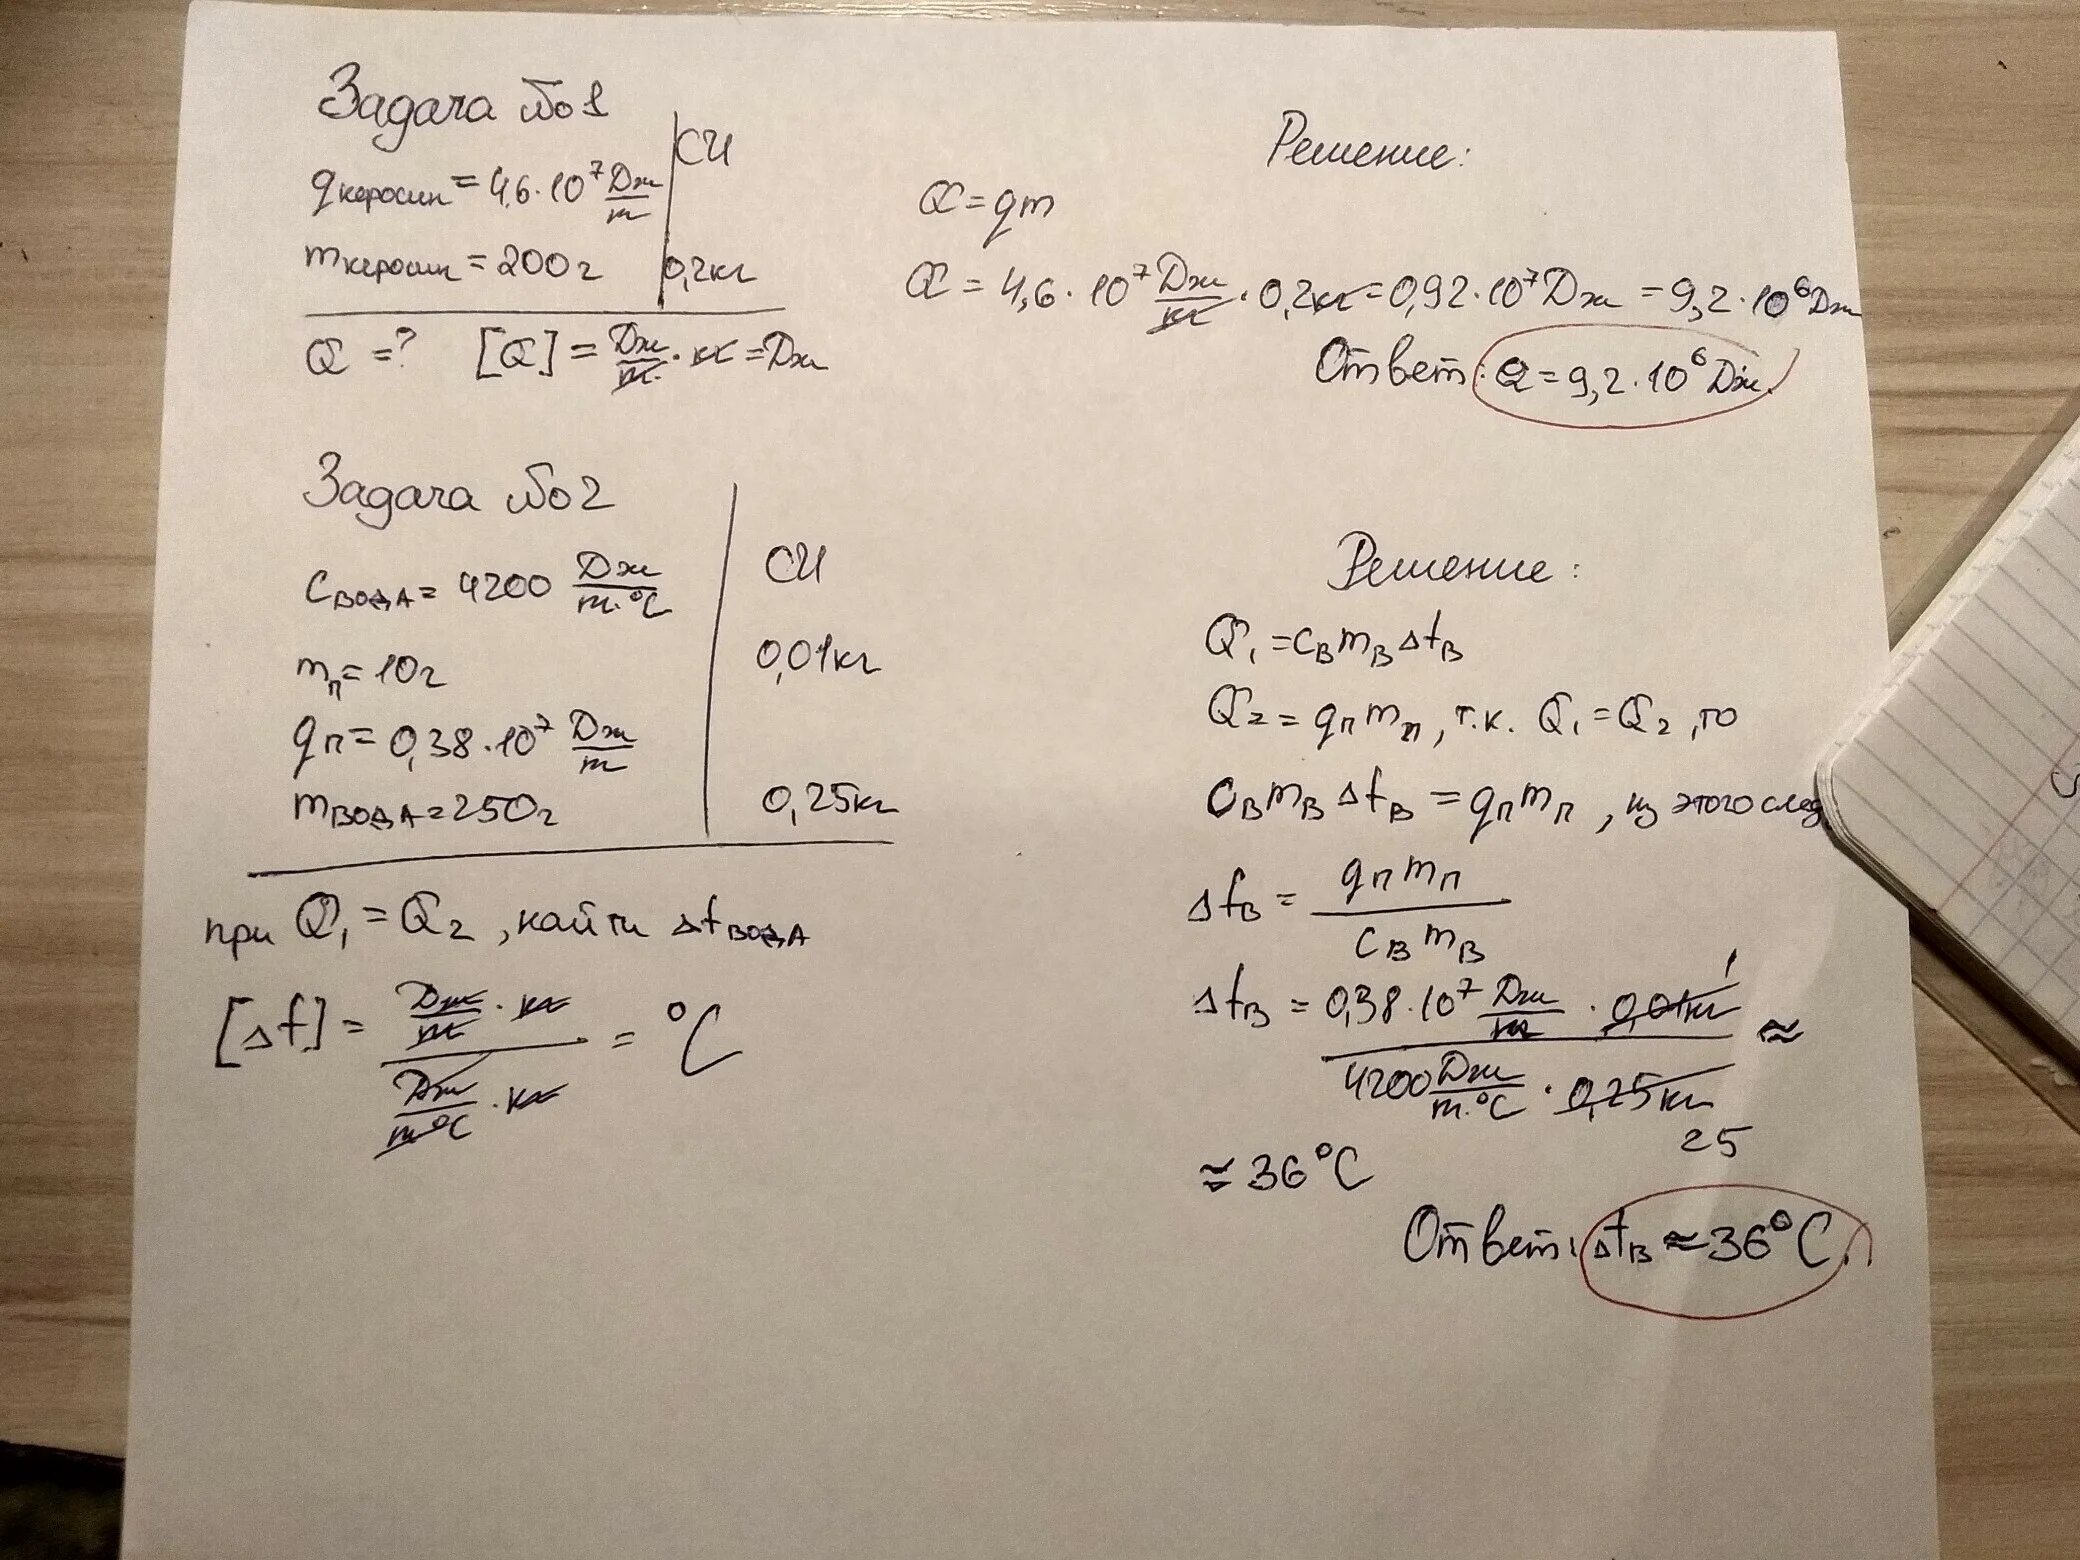 Задача №1
СИ
qкеросин = 4,6·10⁷ Дж/m
mкеросин = 200г 0,2кг
Q = ? [Q] = Дж/m · кг = Дж
Решение:
Q = qm
Q = 4,6·10⁷ Дж/кг · 0,2кг = 0,92·10⁷ Дж = 9,2·10⁶ Дж
Ответ: Q = 9,2·10⁶ Дж.
Задача №2
СИ
cвода = 4200 Дж/m·°C
mп = 10г 0,01кг
qп = 0,38·10⁷ Дж/m
mвода = 250г 0,25кг
при Q₁ = Q₂, найти Δtвода
[Δt] = (Дж/m · кг)/(Дж/m°C · кг) = °C
Решение:
Q₁ = cв mв Δtв
Q₂ = qп mп, т.к. Q₁ = Q₂, то
cв mв Δtв = qп mп, из этого след
Δtв = qп mп / cв mв
Δtв = (0,38·10⁷ Дж/кг · 0,01кг 1)/(4200 Дж/m·°C · 0,25кг 25) ≈
≈ 36°C
Ответ: Δtв ≈ 36°C.